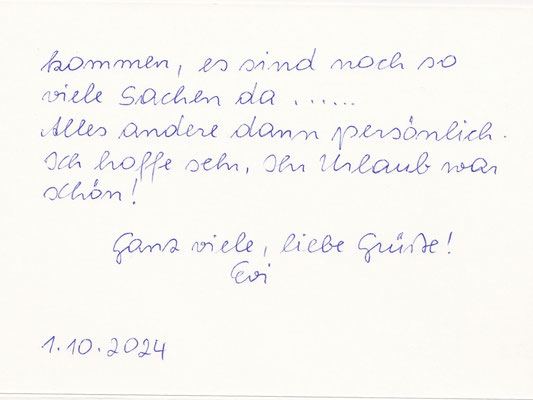 kommen, es sind noch so
viele Sachen da ......
Alles andere dann persönlich.
Ich hoffe sehr, Ihr Urlaub war
schön!
Ganz viele, liebe Grüße!
Evi
1.10.2024